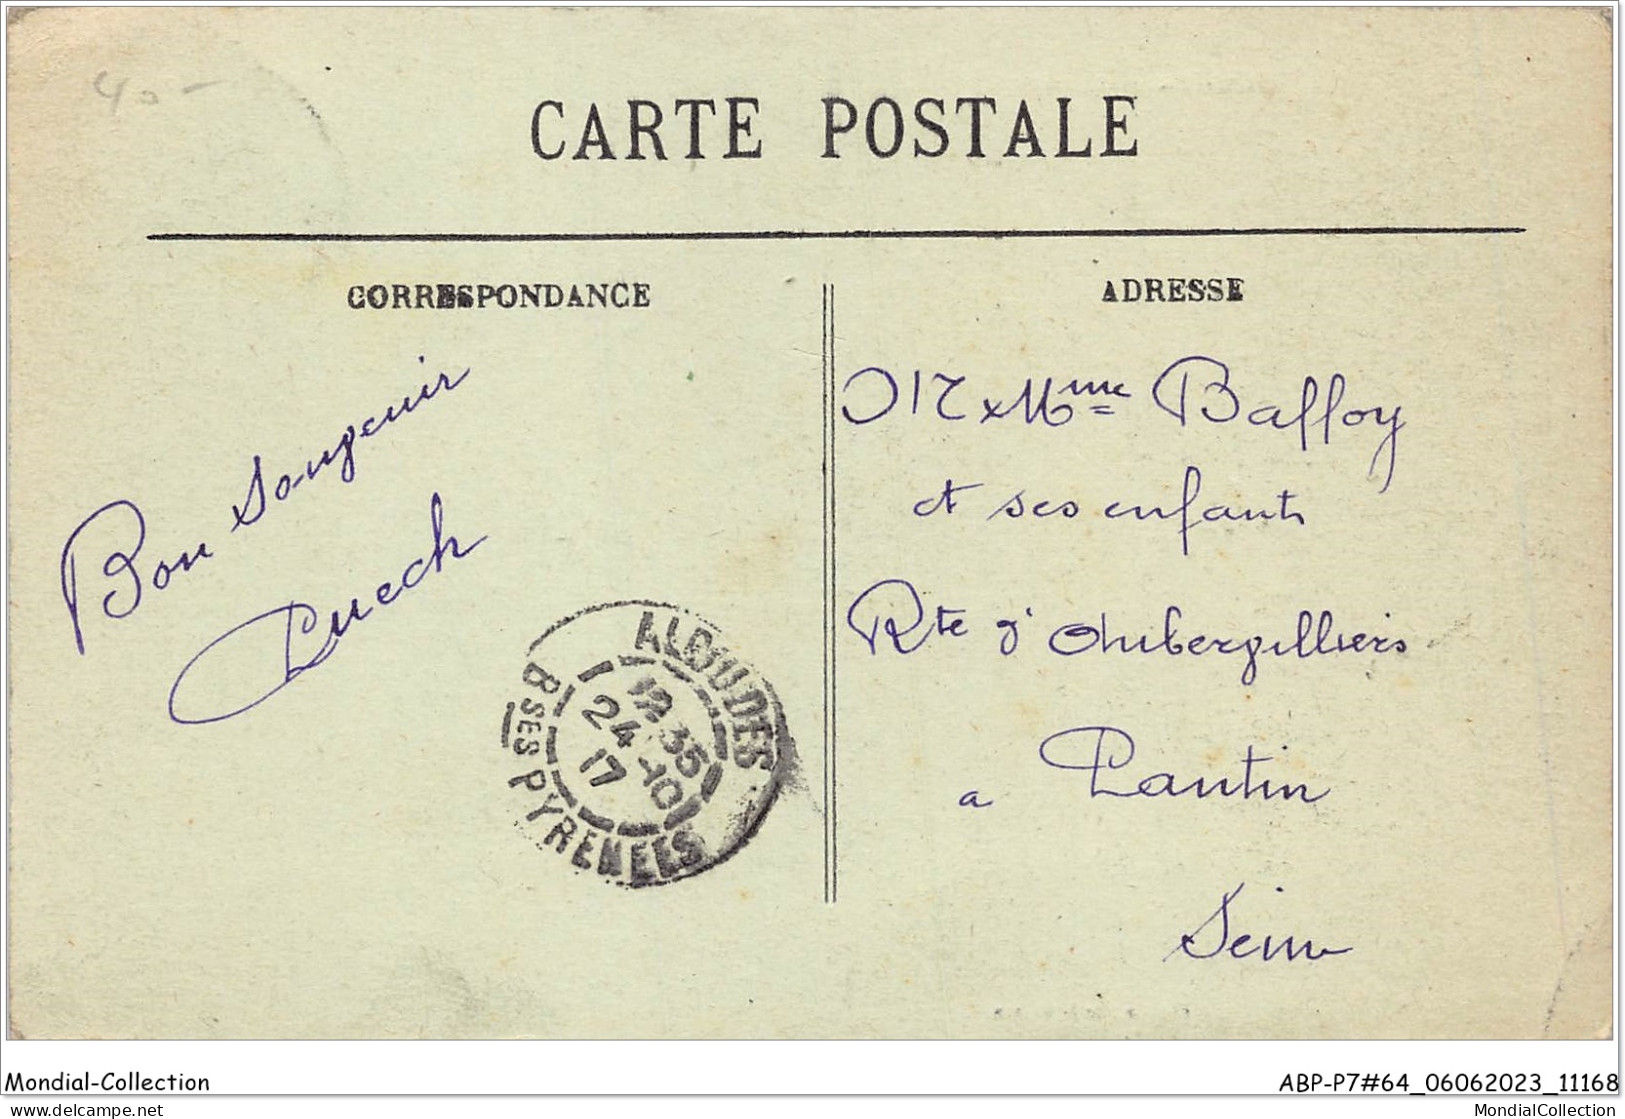 40-
CARTE POSTALE
CORRESPONDANCE
Bon Souvenir
Puech
ALDUDES
12 35
24 -10
17
BSES PYRENEES
ADRESSE
Mr & Mme Baffoy
et ses enfants
Rte d' Aubervilliers
a Pantin
Seine
Mondial-Collection
ABP-P7#64_06062023_11168
delcampe.net
MondialCollection